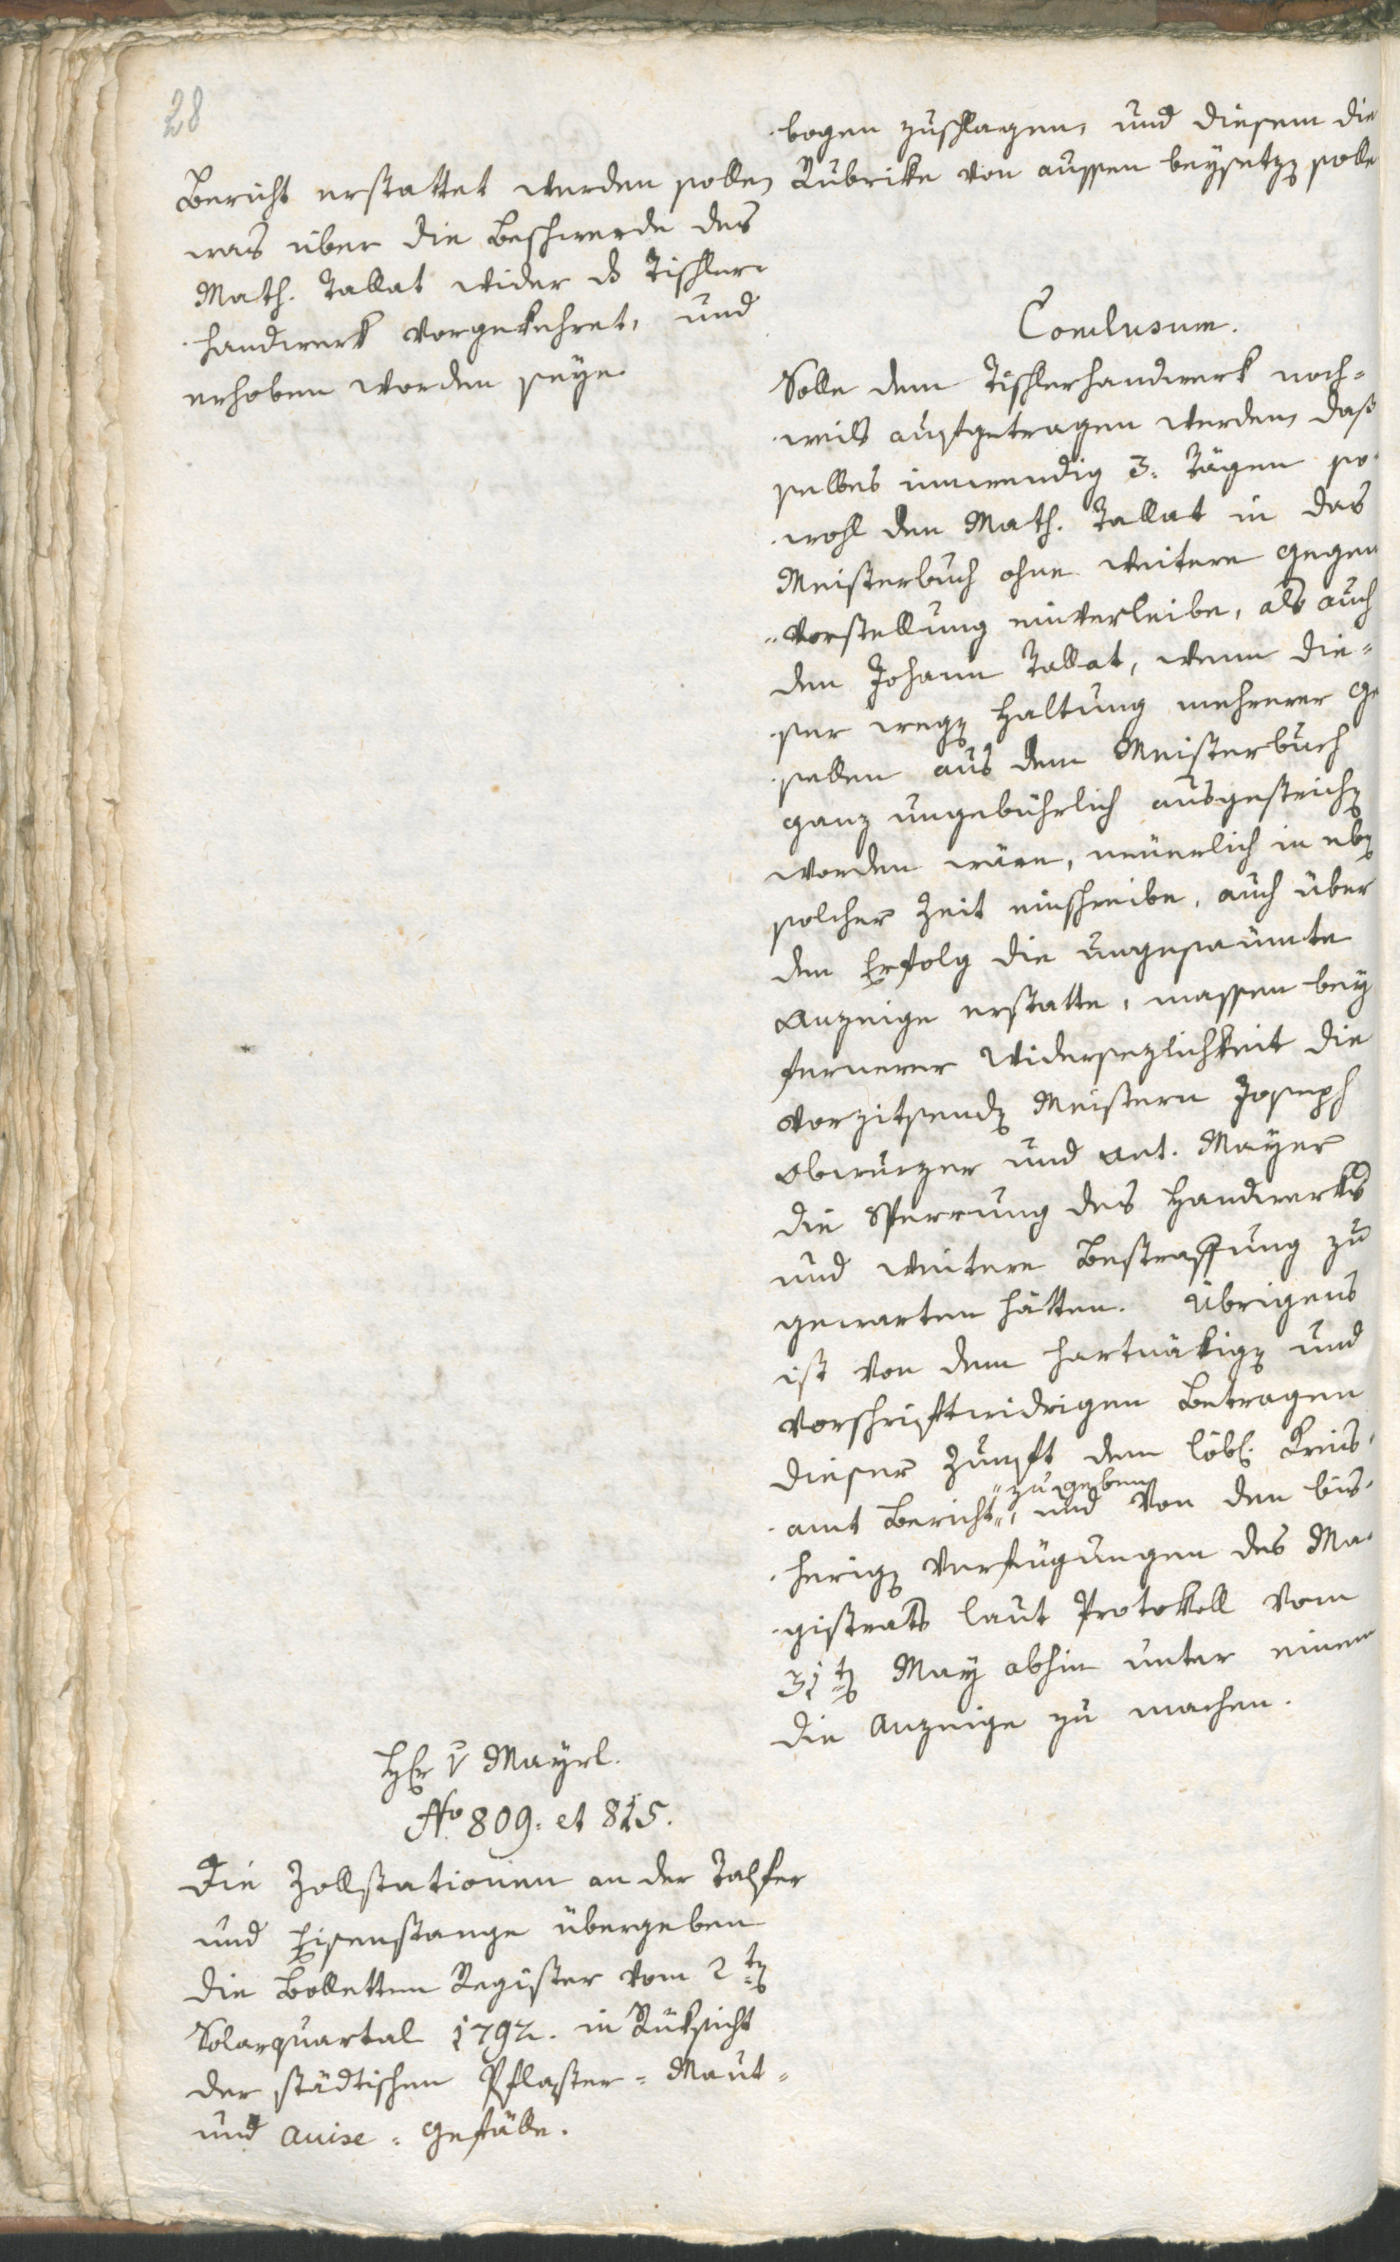 28
Bericht erstattet werden solle,
was über die Beschwerde des
Math. Tallat wider d Tischler-
handwerk vorgekehret, und
erhoben worden seye.
Hr v Mayrl.
No 809. et 815.
Die Zollstationen an der Talfer
und Eisenstange übergeben
die Bolletten Register vom 2ten
Solarquartal 1792. in Rüksicht
der städtischen Pflaster-Maut-
und Accise-Gefälle.
bogen zuschlagen, und diesem die
Rubrike von aussen beysetzen solle
Conclusum.
Solle dem Tischlerhandwerk noch-
mals aufgetragen werden, daß
selbes innwendig 3. Tägen so-
wohl den Math. Tallat in das
Meisterbuch ohne weitere Gegen
vorstellung einverleibe, als auch
den Johann Tallat, wenn die-
ser wegen Haltung mehrerer Ge
sellen aus dem Meisterbuch
ganz ungebührlich ausgestrichen
worden wäre, neüerlich in eben
solcher Zeit einschreibe, auch über
den Erfolg die ungesaumte
Anzeige erstatte, massen bey
fernerer Widersezlichkeit die
vorzitsenden Meistern Joseph
Obwurzer und Ant. Mayer
die Sperrung des Handwerks
und weitere Bestraffung zu
gewarten hätten. Übrigens
ist von dem hartnäkigen und
vorschriftwidrigen Betragen
dieser Zunft dem löbl. Kreis-
amt Bericht zu geben, und von den bis-
herigen Verfügungen des Ma-
gistrats laut Protokoll vom
31ten May abhin unter einem
die Anzeige zu machen.